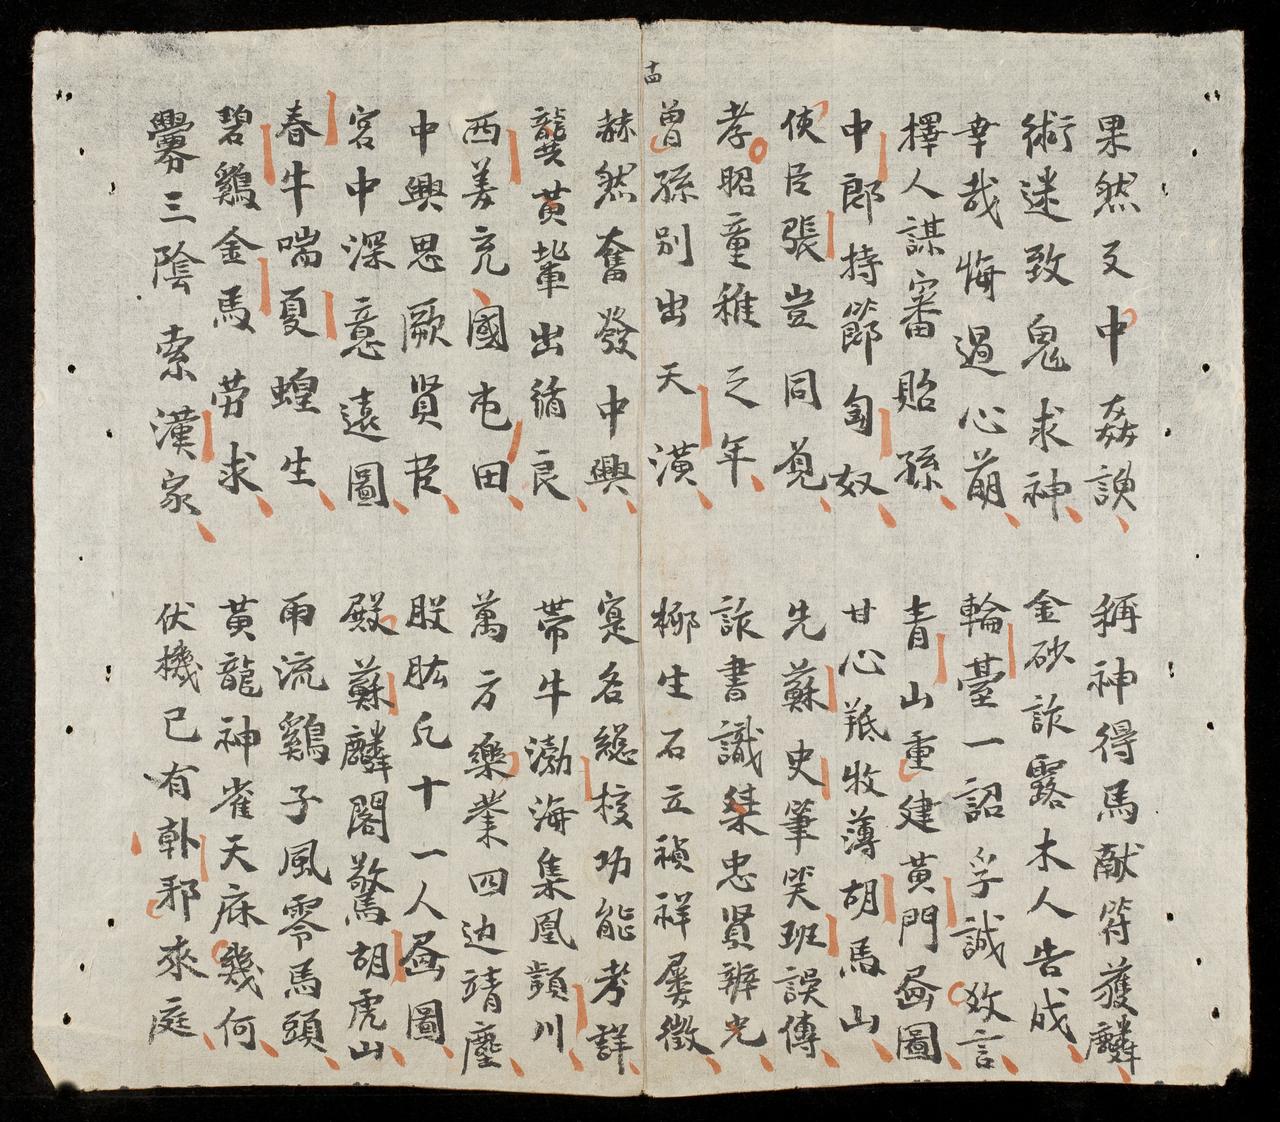 十四
果然又中姦諛
稱神得馬献符獲麟
術迷致鬼求神
金砂詐露木人告成
幸哉悔過心萌
輪臺一詔孚誠致言
擇人謀審貽孫
青山重建黃門畫圖
中郎持節匈奴
甘心羝牧薄胡馬山
使臣張豈同覓
先蘇史筆哭班誤傳
孝昭童稚之年
詐書識桀忠賢辨光
曾孫別出天潢
柳生石立禎祥屡徵
赫然奮發中興
寔名総核功能考詳
龔黃輩出循良
帶牛渤海集凰顈川
西羌充國屯田
萬方樂業四边靖塵
中興思厥賢臣
股肱凡十一人畫圖
宮中深意遠圖
殿蘇麟閣驚胡虎山
春牛喘夏蝗生
雨流鷄子風零馬頭
碧鷄金馬勞求
黃龍神雀天庥幾何
釁三陰索漢家
伏機已有邪來庭